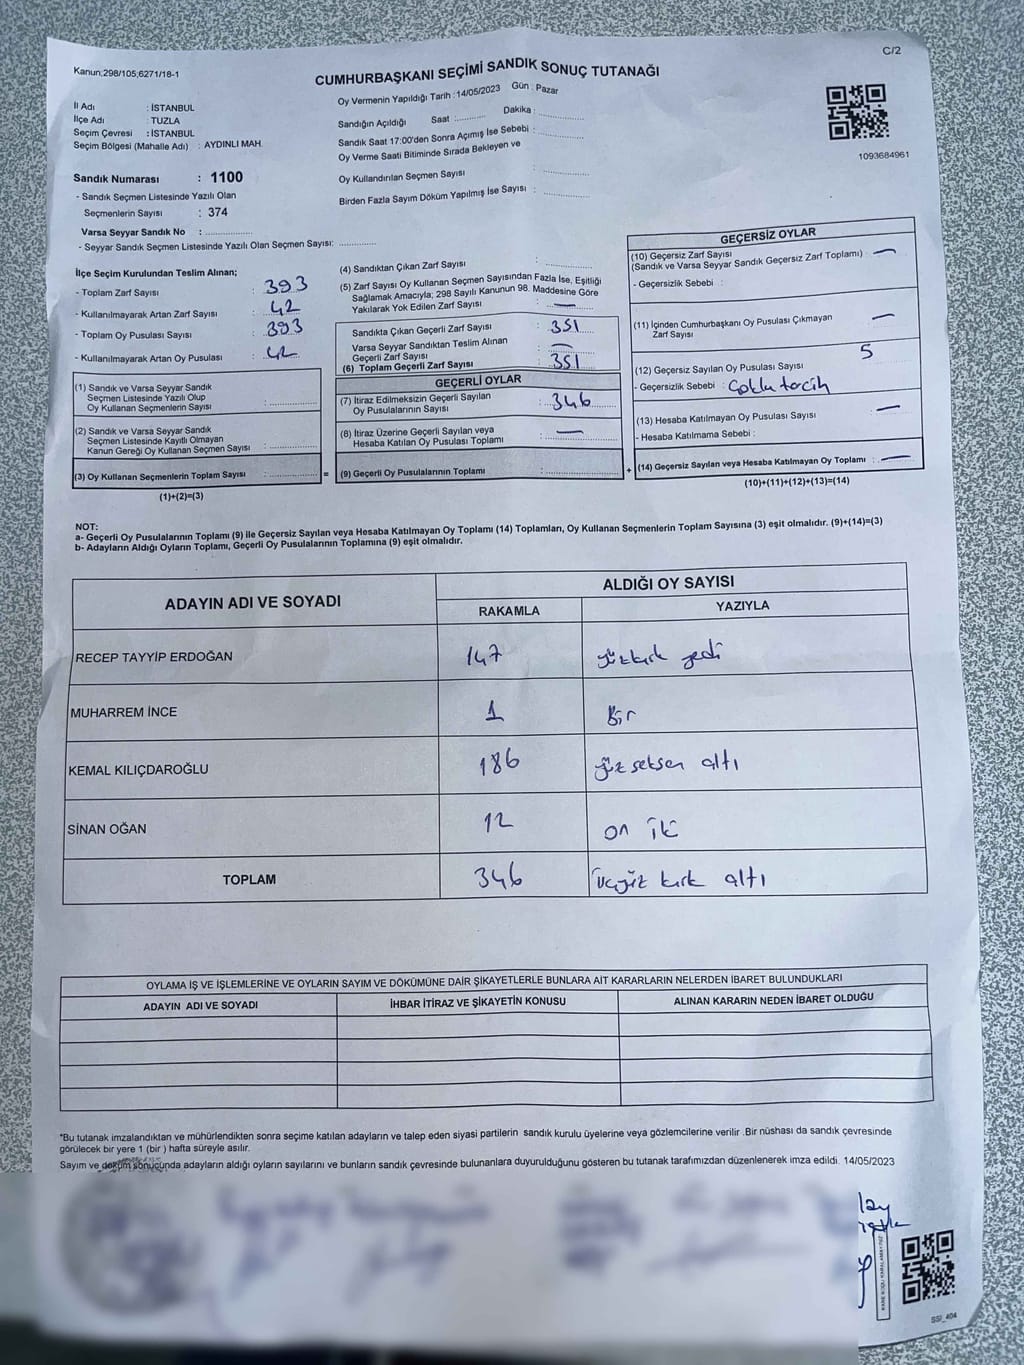 C/2
Kanun;298/105;6271/18-1
CUMHURBAŞKANI SEÇİMİ SANDIK SONUÇ TUTANAĞI
İl Adı : İSTANBUL
İlçe Adı : TUZLA
Seçim Çevresi : İSTANBUL
Seçim Bölgesi (Mahalle Adı) : AYDINLI MAH.
Sandık Numarası : 1100
- Sandık Seçmen Listesinde Yazılı Olan
Seçmenlerin Sayısı : 374
Varsa Seyyar Sandık No : ..................
- Seyyar Sandık Seçmen Listesinde Yazılı Olan Seçmen Sayısı: ..............
Oy Vermenin Yapıldığı Tarih : 14/05/2023 Gün : Pazar
Sandığın Açıldığı Saat : ........... Dakika : ...........
Sandık Saat 17:00'den Sonra Açımış İse Sebebi : ..............
Oy Verme Saati Bitiminde Sırada Bekleyen ve
Oy Kullandırılan Seçmen Sayısı : ..............
Birden Fazla Sayım Döküm Yapılmış İse Sayısı : ..............
1093684961
İlçe Seçim Kurulundan Teslim Alınan;
- Toplam Zarf Sayısı : 393
- Kullanılmayarak Artan Zarf Sayısı : 42
- Toplam Oy Pusulası Sayısı : 393
- Kullanılmayarak Artan Oy Pusulası : 42
(1) Sandık ve Varsa Seyyar Sandık
Seçmen Listesinde Yazılı Olup
Oy Kullanan Seçmenlerin Sayısı : ..............
(2) Sandık ve Varsa Seyyar Sandık
Seçmen Listesinde Kayıtlı Olmayan
Kanun Gereği Oy Kullanan Seçmen Sayısı : ..............
(3) Oy Kullanan Seçmenlerin Toplam Sayısı : ..............
(1)+(2)=(3)
=
(4) Sandıktan Çıkan Zarf Sayısı : ..............
(5) Zarf Sayısı Oy Kullanan Seçmen Sayısından Fazla İse, Eşitliği
Sağlamak Amacıyla; 298 Sayılı Kanunun 98. Maddesine Göre
Yakılarak Yok Edilen Zarf Sayısı : —
Sandıkta Çıkan Geçerli Zarf Sayısı : 351
Varsa Seyyar Sandıktan Teslim Alınan
Geçerli Zarf Sayısı : —
(6) Toplam Geçerli Zarf Sayısı : 351
GEÇERLİ OYLAR
(7) İtiraz Edilmeksizin Geçerli Sayılan
Oy Pusulalarının Sayısı : 346
(8) İtiraz Üzerine Geçerli Sayılan veya
Hesaba Katılan Oy Pusulası Toplamı : —
(9) Geçerli Oy Pusulalarının Toplamı : ..............
+
GEÇERSİZ OYLAR
(10) Geçersiz Zarf Sayısı
(Sandık ve Varsa Seyyar Sandık Geçersiz Zarf Toplamı) —
- Geçersizlik Sebebi :
(11) İçinden Cumhurbaşkanı Oy Pusulası Çıkmayan
Zarf Sayısı —
(12) Geçersiz Sayılan Oy Pusulası Sayısı 5
- Geçersizlik Sebebi : Çoklu tercih
(13) Hesaba Katılmayan Oy Pusulası Sayısı —
- Hesaba Katılmama Sebebi :
(14) Geçersiz Sayılan veya Hesaba Katılmayan Oy Toplamı : —
(10)+(11)+(12)+(13)=(14)
NOT:
a- Geçerli Oy Pusulalarının Toplamı (9) ile Geçersiz Sayılan veya Hesaba Katılmayan Oy Toplamı (14) Toplamları, Oy Kullanan Seçmenlerin Toplam Sayısına (3) eşit olmalıdır. (9)+(14)=(3)
b- Adayların Aldığı Oyların Toplamı, Geçerli Oy Pusulalarının Toplamına (9) eşit olmalıdır.
ADAYIN ADI VE SOYADI ALDIĞI OY SAYISI
RAKAMLA YAZIYLA
RECEP TAYYİP ERDOĞAN 147 yüzkırk yedi
MUHARREM İNCE 1 Bir
KEMAL KILIÇDAROĞLU 186 yüz seksen altı
SİNAN OĞAN 12 on iki
TOPLAM 346 üçyüz kırk altı
OYLAMA İŞ VE İŞLEMLERİNE VE OYLARIN SAYIM VE DÖKÜMÜNE DAİR ŞİKAYETLERLE BUNLARA AİT KARARLARIN NELERDEN İBARET BULUNDUKLARI
ADAYIN ADI VE SOYADI İHBAR İTİRAZ VE ŞİKAYETİN KONUSU ALINAN KARARIN NEDEN İBARET OLDUĞU
*Bu tutanak imzalandıktan ve mühürlendikten sonra seçime katılan adayların ve talep eden siyasi partilerin sandık kurulu üyelerine veya gözlemcilerine verilir .Bir nüshası da sandık çevresinde
görülecek bir yere 1 (bir ) hafta süreyle asılır.
Sayım ve döküm sonucunda adayların aldığı oyların sayılarını ve bunların sandık çevresinde bulunanlara duyurulduğunu gösteren bu tutanak tarafımızdan düzenlenerek imza edildi. 14/05/2023
SSI_404